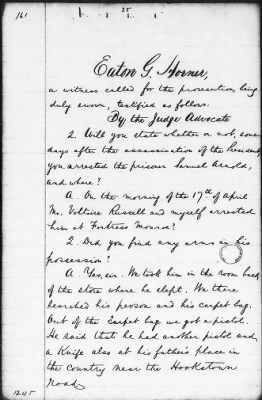 161
25
Eaton G. Horner,
a witness called for the prosecution, being
duly sworn, testified as follows.
By the Judge Advocate
Q. Will you state whether or not, some
days after the assassination of the President,
you arrested the prisoner Samuel Arnold,
and where?
A. On the morning of the 17th of April
Mr. Voltaire Russell and myself arrested
him at Fortress Monroe?
Q. Did you find any arms in his
possession?
A. Yes, sir. We took him in the room back
of the store where he slept. We there
searched his person and his carpet bag.
Out of the carpet bag we got a pistol.
He said that he had another pistol and
a Knife also at his father's place in
the country near the Hookstown
road.